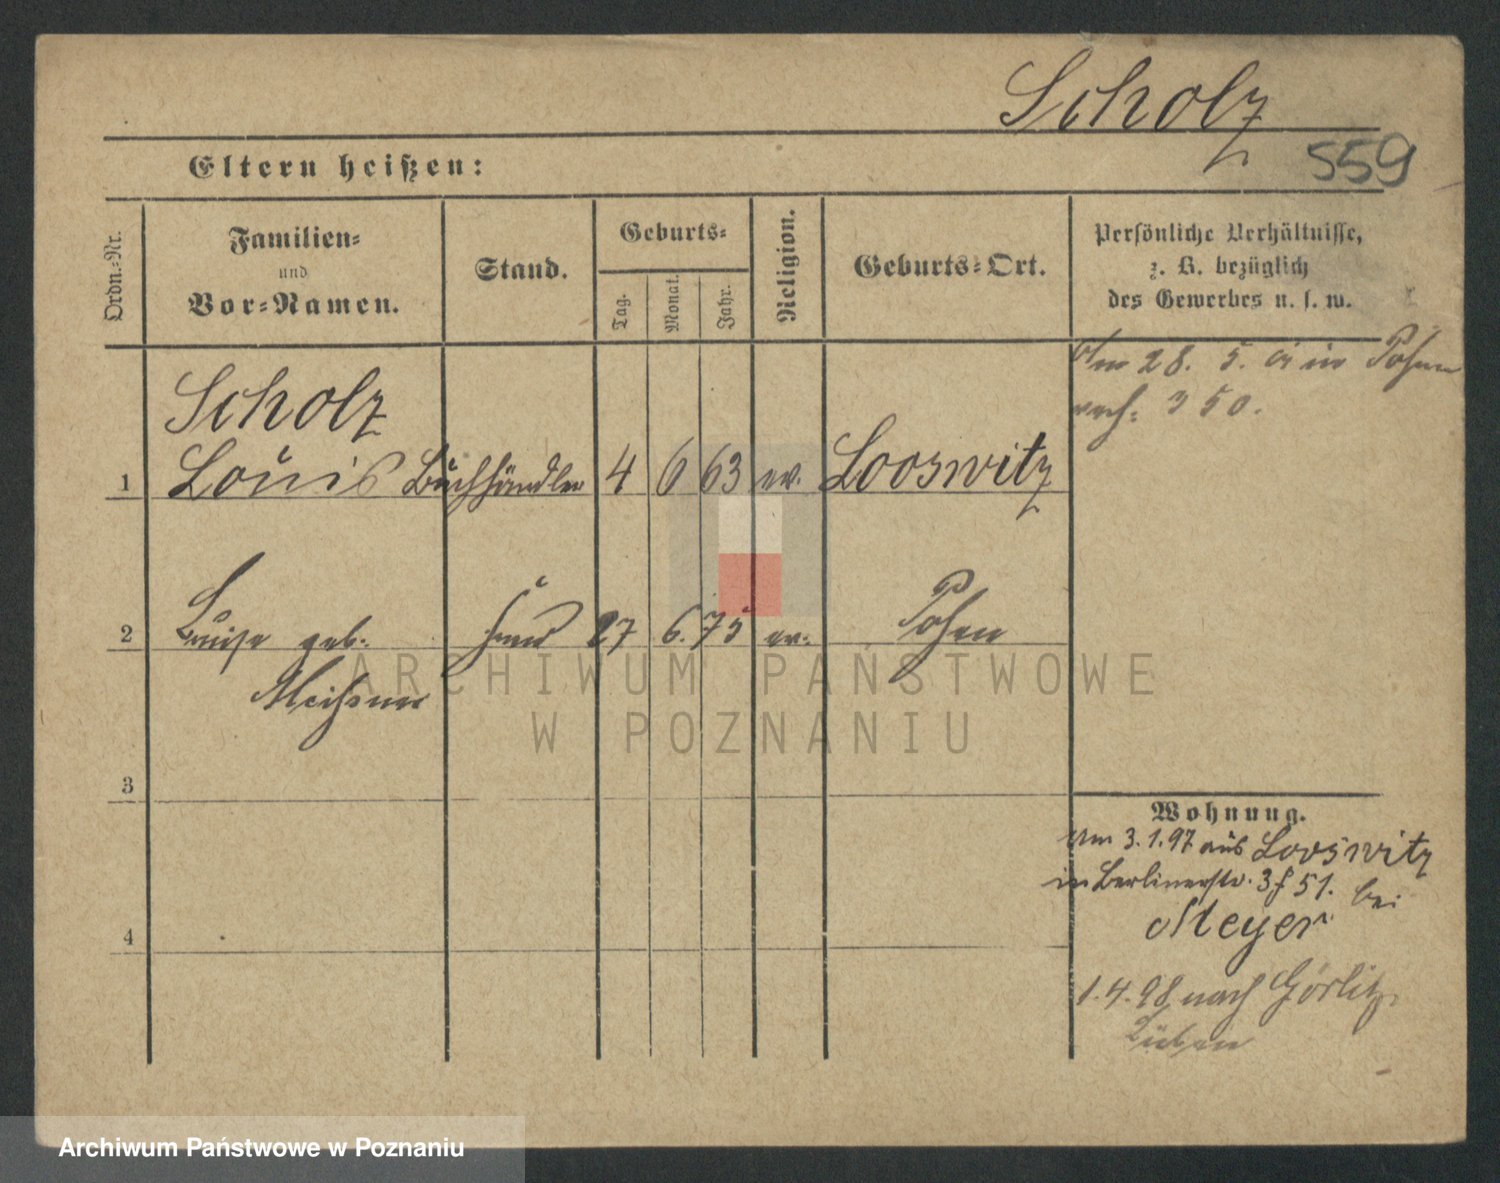 Scholz
559
Eltern heißen:
Ordn.-Nr.
Familien-
und
Vor-Namen.
Stand.
Geburts-
Tag.
Monat.
Jahr.
Religion.
Geburts-Ort.
Persönliche Verhältnisse,
z. B. bezüglich
des Gewerbes u. s. w.
28. 5. in Posen
350.
Scholz
1 Louis Buchhändler 4 6 63 ev. Looswitz
2 Luise geb. 27 6. 75 ev. Posen
Meißner
3
4
Wohnung.
Am 3.1.97 aus Looswitz
in Berlinerstr. 3 51. bei
Meyer
1.4.98 nach Görlitz
Lüben
ARCHIWUM PAŃSTWOWE
W POZNANIU
Archiwum Państwowe w Poznaniu